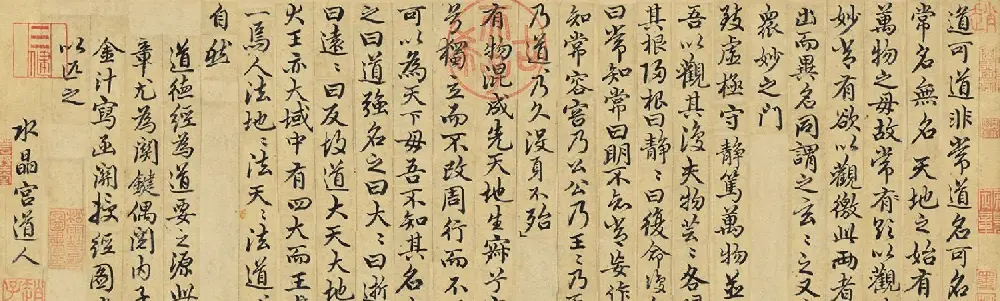 道可道非常道名可名
常名無名天地之始有
萬物之母故常有欲以觀
妙常有欲以觀徼此兩者
出而異名同謂之玄〻之又
衆妙之门
致虛極守靜篤萬物並
吾以觀其復夫物芸〻各歸
其根歸根曰靜〻曰復命復
曰常知常曰明不知常妄作
知常容容乃公公乃王〻乃
乃道〻乃久没身不殆
有物混成先天地生寂兮
兮獨立而不改周行而不
可以為天下母吾不知其名
之曰道強名之曰大〻曰逝
曰遠〻曰反故道大天大地
大王亦大域中有四大而王
一焉人法地〻法天〻法道
自然
道德經為道要之源此
章尤為関鍵偶閱内
金汁寫函関授經圖
以匹之
水晶宮道人